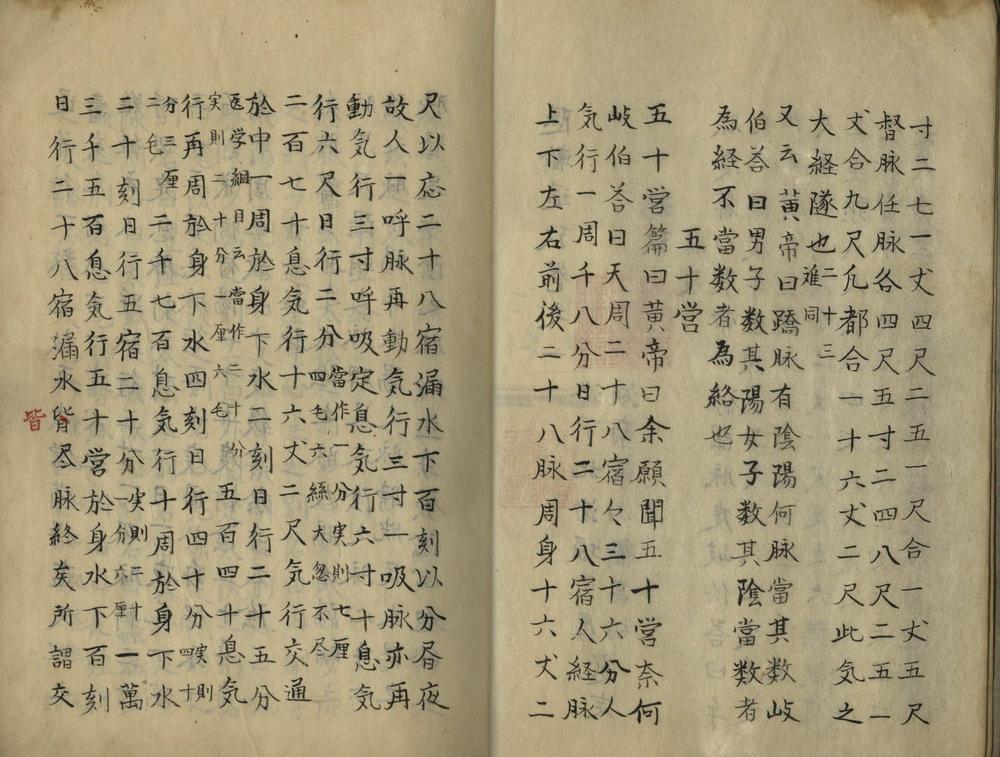 寸二七一丈四尺二五一尺合一丈五尺
督脉任脉各四尺五寸二四八尺二五一
丈合九尺凢都合一十六丈二尺此気之
大経隧也二十三难同
又云黄帝曰蹻脉有陰陽何脉當其数岐
伯荅曰男子数其陽女子数其陰當数者
為経不當数者為絡也
五十営
五十営篇曰黄帝曰余願聞五十営奈何
岐伯荅曰天周二十八宿々三十六分人
気行一周千八分日行二十八宿人経脉
上下左右前後二十八脉周身十六丈二
尺以応二十八宿漏水下百刻以分昼夜
故人一呼脉再動気行三寸一吸脉亦再
動気行三寸呼吸定息気行六寸十息気
行六尺日行二分當作一分実則七厘四毛六絲大忽不尽
二百七十息気行十六丈二尺気行交通
於中一周於身下水二刻日行二十五分
医学綱目云當作二十分実則二十分一厘六毛五百四十息気
行再周於身下水四刻日行四十分実則四十
分三厘二毛二千七百息気行十周於身下水
二十刻日行五宿二十分実則二十一分六厘一萬
三千五百息気行五十営於身水下百刻
日行二十八宿漏水皆尽脉終矣所謂交
皆